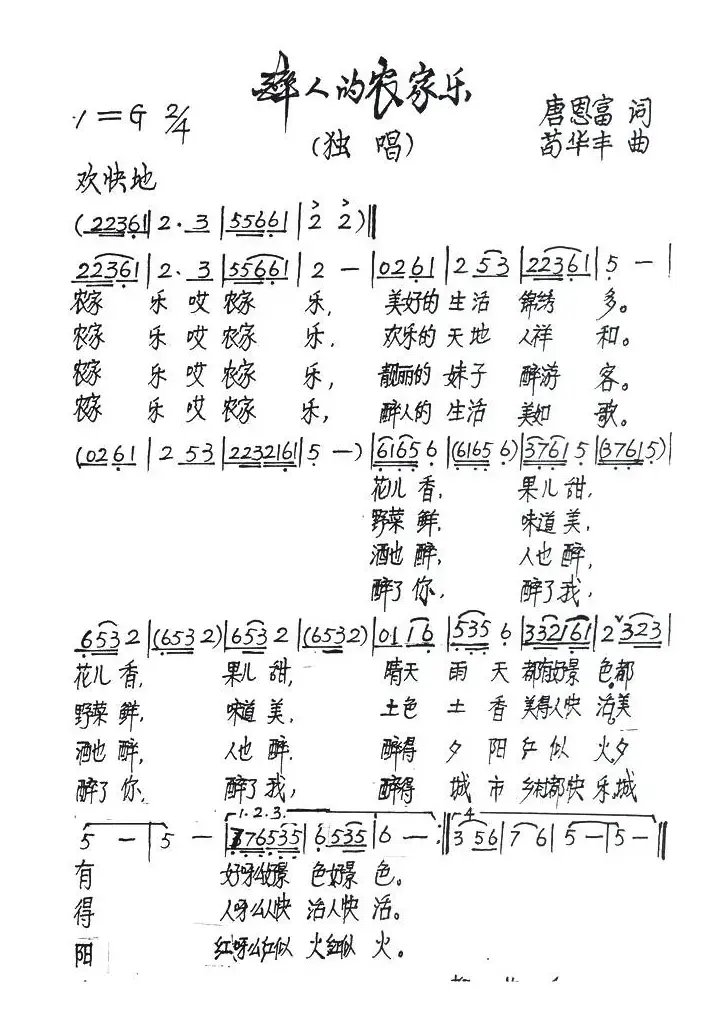 醉人的农家乐
1=G 2/4
(独唱)
唐恩富 词
苟华丰 曲
欢快地
(22361|2·3|55661|2 2)‖
22361|2·3|55661|2 —|0261|2 53|22361|5 —|
农家 乐 哎 农家 乐, 美好的 生活 锦绣 多。
农家 乐 哎 农家 乐, 欢乐的 天地 人祥 和。
农家 乐 哎 农家 乐, 靓丽的 妹子 醉游 客。
农家 乐 哎 农家 乐, 醉人的 生活 美如 歌。
(0261|2 53|2232161|5 —)|6165 6|(6165 6)|3761 5|(3761 5)|
花儿 香, 果儿 甜,
野菜 鲜, 味道 美,
酒也 醉, 人也 醉,
醉了 你, 醉了 我,
653 2|(653 2)|653 2|(653 2)|01 1 6|535 6|332161|2 ˅323|
花儿 香, 果儿 甜, 晴天 雨 天 都有好景 色,都
野菜 鲜, 味道 美, 土色 土 香 美得人快 活。美
酒也 醉, 人也 醉. 醉得 夕 阳 红 似 火,夕
醉了 你, 醉了 我, 醉得 城 市 乡村都快 乐,城
1.2.3. 4
5 —|5 —|376535|6 535|6 —:‖3 56|7 6|5 —|5 —‖
有 好呀么好景 色好景 色。
得 人呀么人快 活人快 活。
阳 红呀么红似 火红似 火。